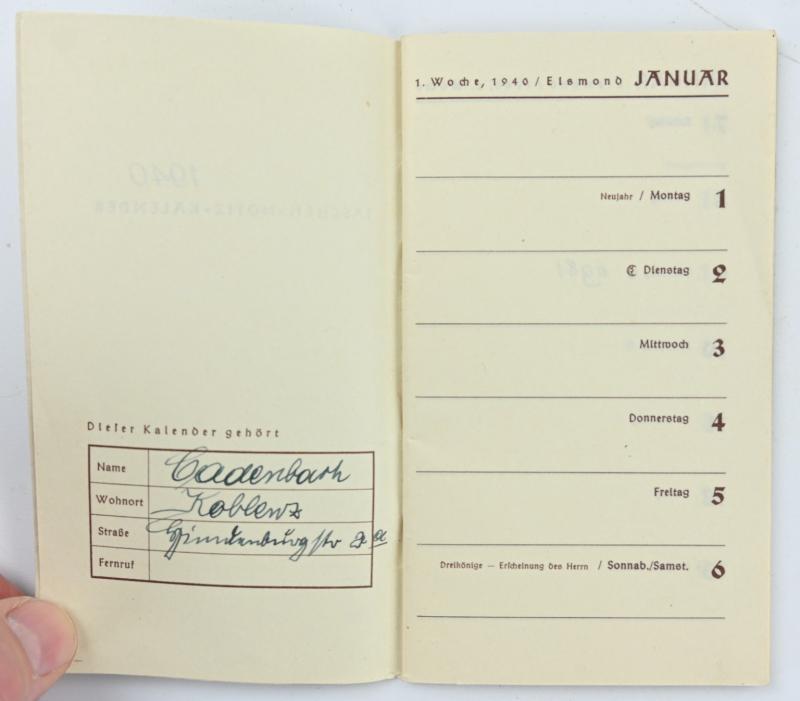 Dieser Kalender gehört
Name Cadenbach
Wohnort Koblenz
Straße Hindenburgstr 2 a
Fernruf
1. Woche, 1940 / Eismond JANUAR
Neujahr / Montag 1
Dienstag 2
Mittwoch 3
Donnerstag 4
Freitag 5
Dreikönige — Erscheinung des Herrn / Sonnab./Samst. 6